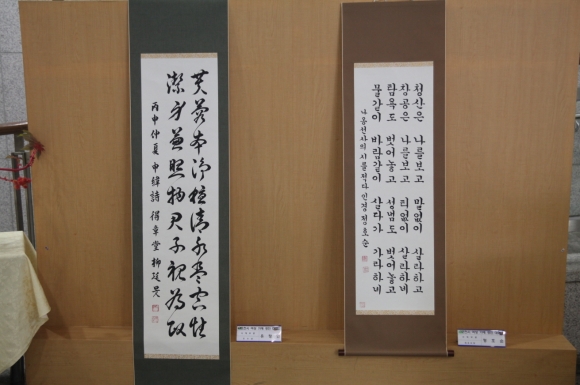 芙蓉本淨植清水是性
潔身兼照物君子視為政
丙申仲夏 申緯詩 得章堂 柳
청산은 나를보고 말없이 살라하고
창공은 나를보고 티없이 살라하네
탐욕도 벗어놓고 성냄도 벗어놓고
물같이 바람같이 살다가 가라하네
나옹선사의 시를 적다 인경 정호순